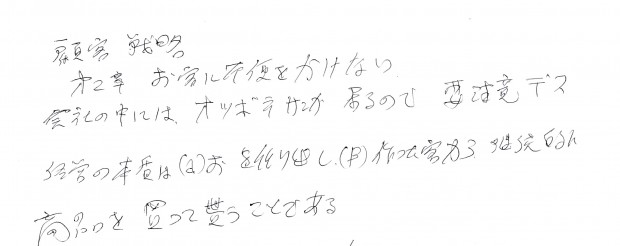 顧客戦略
オ2章 お客に不便をかけない
会社の中には、オツボネサンが居るので 要注意デス
経営の本質は(a)お を作り出し、(B)作ったお客から 継続的に
商品を買って貰うことである